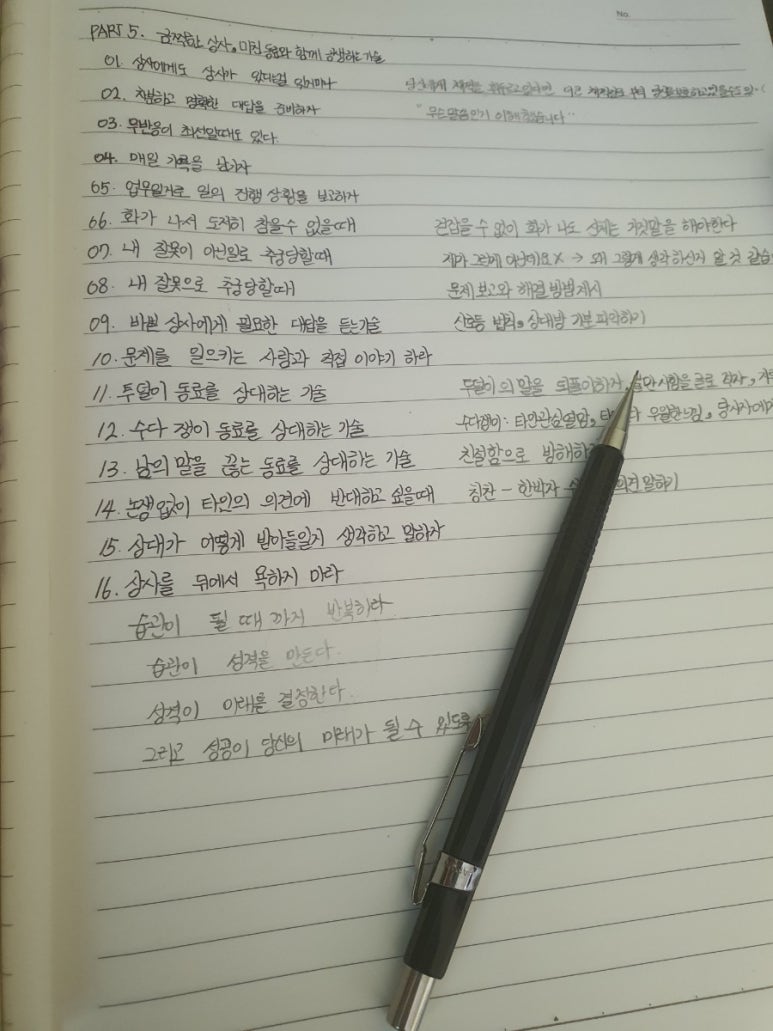 No.
PART 5. 끔찍한 상사, 미친 동료와 함께 공생하는 기술
01. 상사에게도 상사가 있다는걸 잊지마라
02. 차분하고 명확한 대답을 준비하자 "무슨말씀인지 이해했습니다"
03. 무반응이 최선일때도 있다.
04. 매일 기록을 남기자
05. 업무일지로 일의 진행 상황을 보고하자
06. 화가 나서 도저히 참을수 없을때 걷잡을 수 없이 화가 나도 상대는 거짓말을 해야한다
07. 내 잘못이 아닌일로 추궁당할때 제가 그런게 아닌데요 X → 왜 그렇게 생각하신지 알 것 같습
08. 내 잘못으로 추궁당할때 문제 보고와 해결 방법 제시
09. 바쁜 상사에게 필요한 대답을 듣는기술 신호등 법칙, 상대방 기분 파악하기
10. 문제를 일으키는 사람과 직접 이야기 하라
11. 투덜이 동료를 상대하는 기술 투덜이의 말을 되풀이하자, 불만사항을 글로 적자,
12. 수다 쟁이 동료를 상대하는 기술 수다쟁이: 타인관심열망, 우월한느낌, 당사자에
13. 남의 말을 끊는 동료를 상대하는 기술 친절함으로 방해하
14. 논쟁 없이 타인의 의견에 반대하고 싶을때 칭찬 - 한박자 의견 말하기
15. 상대가 어떻게 받아들일지 생각하고 말하자
16. 상사를 뒤에서 욕하지 마라
습관이 될 때 까지 반복하라
습관이 성격을 만든다.
성격이 미래를 결정한다.
그리고 성공이 당신의 미래가 될 수 있도록